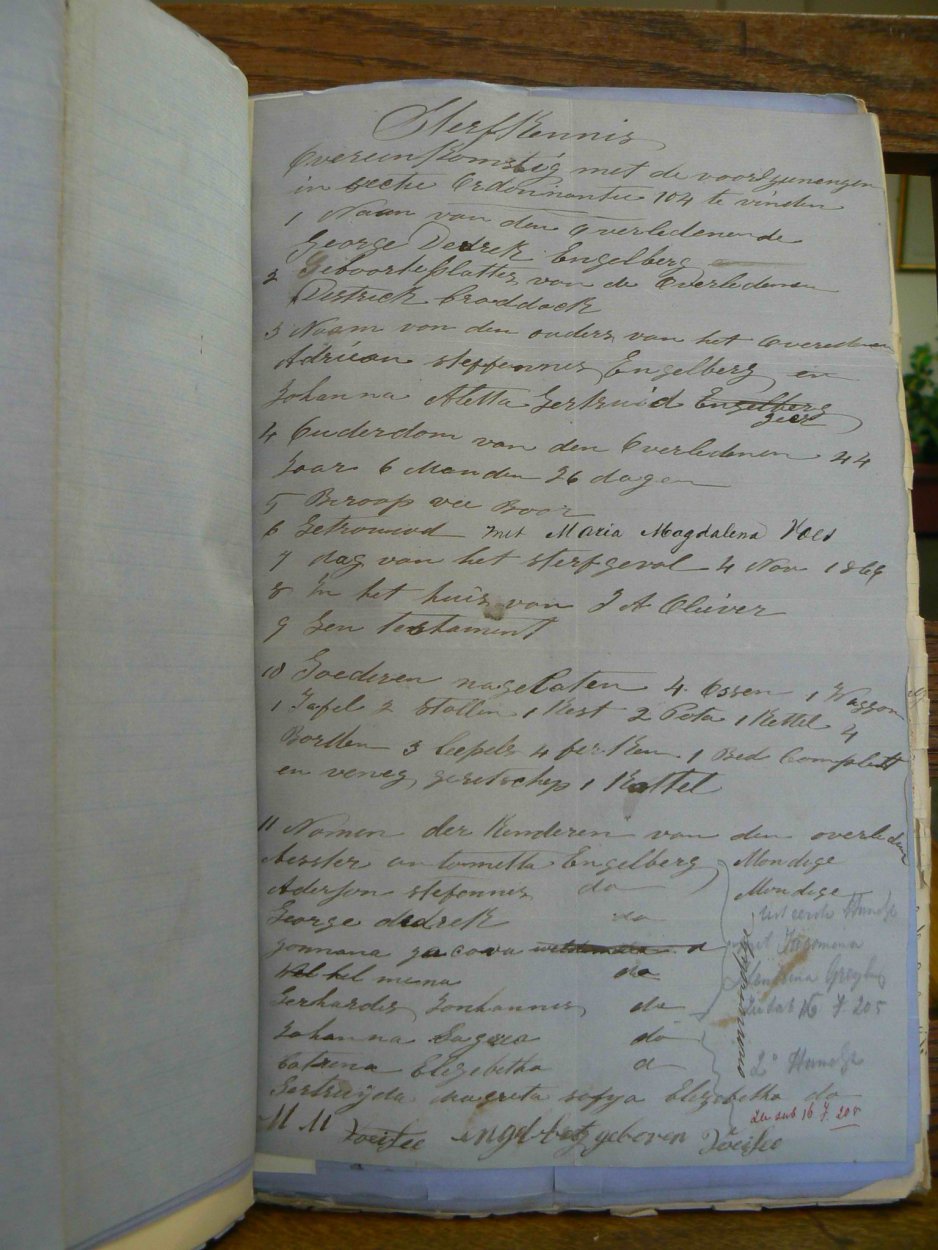 Sterf Kennis
Overeen Komstig met de voordzuningen
in sectie Ordonnantie 104 te vinden
1 Naam van den Overledenende
George Dedrek Engelberg
2 Geboorte Platts van de Overledenen
Districk Craddock
3 Naam van den ouders van het Overeden
Adriean Steffennes Engelberg en
Johanna Aletta Gertruid Engelberg
4 Ouderdom van den Overledenen 44
Jaar 6 Manden 26 dagen
5 Beroap vee Boor
6 Getrouwd met Maria Magdalena
7 dag van het sterfgeval 4 Nov 1869
8 In het huis van J A Oliever
9 Gen Testament
10 Goederen nagelaten 4 Ossen 1 Waggon
1 Tafel 2 Stollen 1 Kest 2 Pota 1 Kettel 4
Bortten 3 leepels 4 ferken 1 Bed Compleet
en veneg geretschep 1 Kettel
11 Namen der Kenderen van den overledene
Hester an tometta Engelberg Mondege
Aderjon stefennes do Mondege
George dedrek do
Jonnana Jacova d
Wel hel mena do
Gerhardes Jonhannes do
Johanna Sagrea do
Catrena Elezebetha d
Gertruijda Magreta sofya Elezebetha do
2e Huwelijk
zu sub 16 F. 205
M M Voislee Engelbergh geboven Voislee